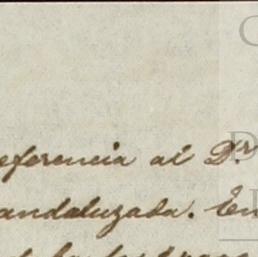 eferencia al Dr
andaluzada. En